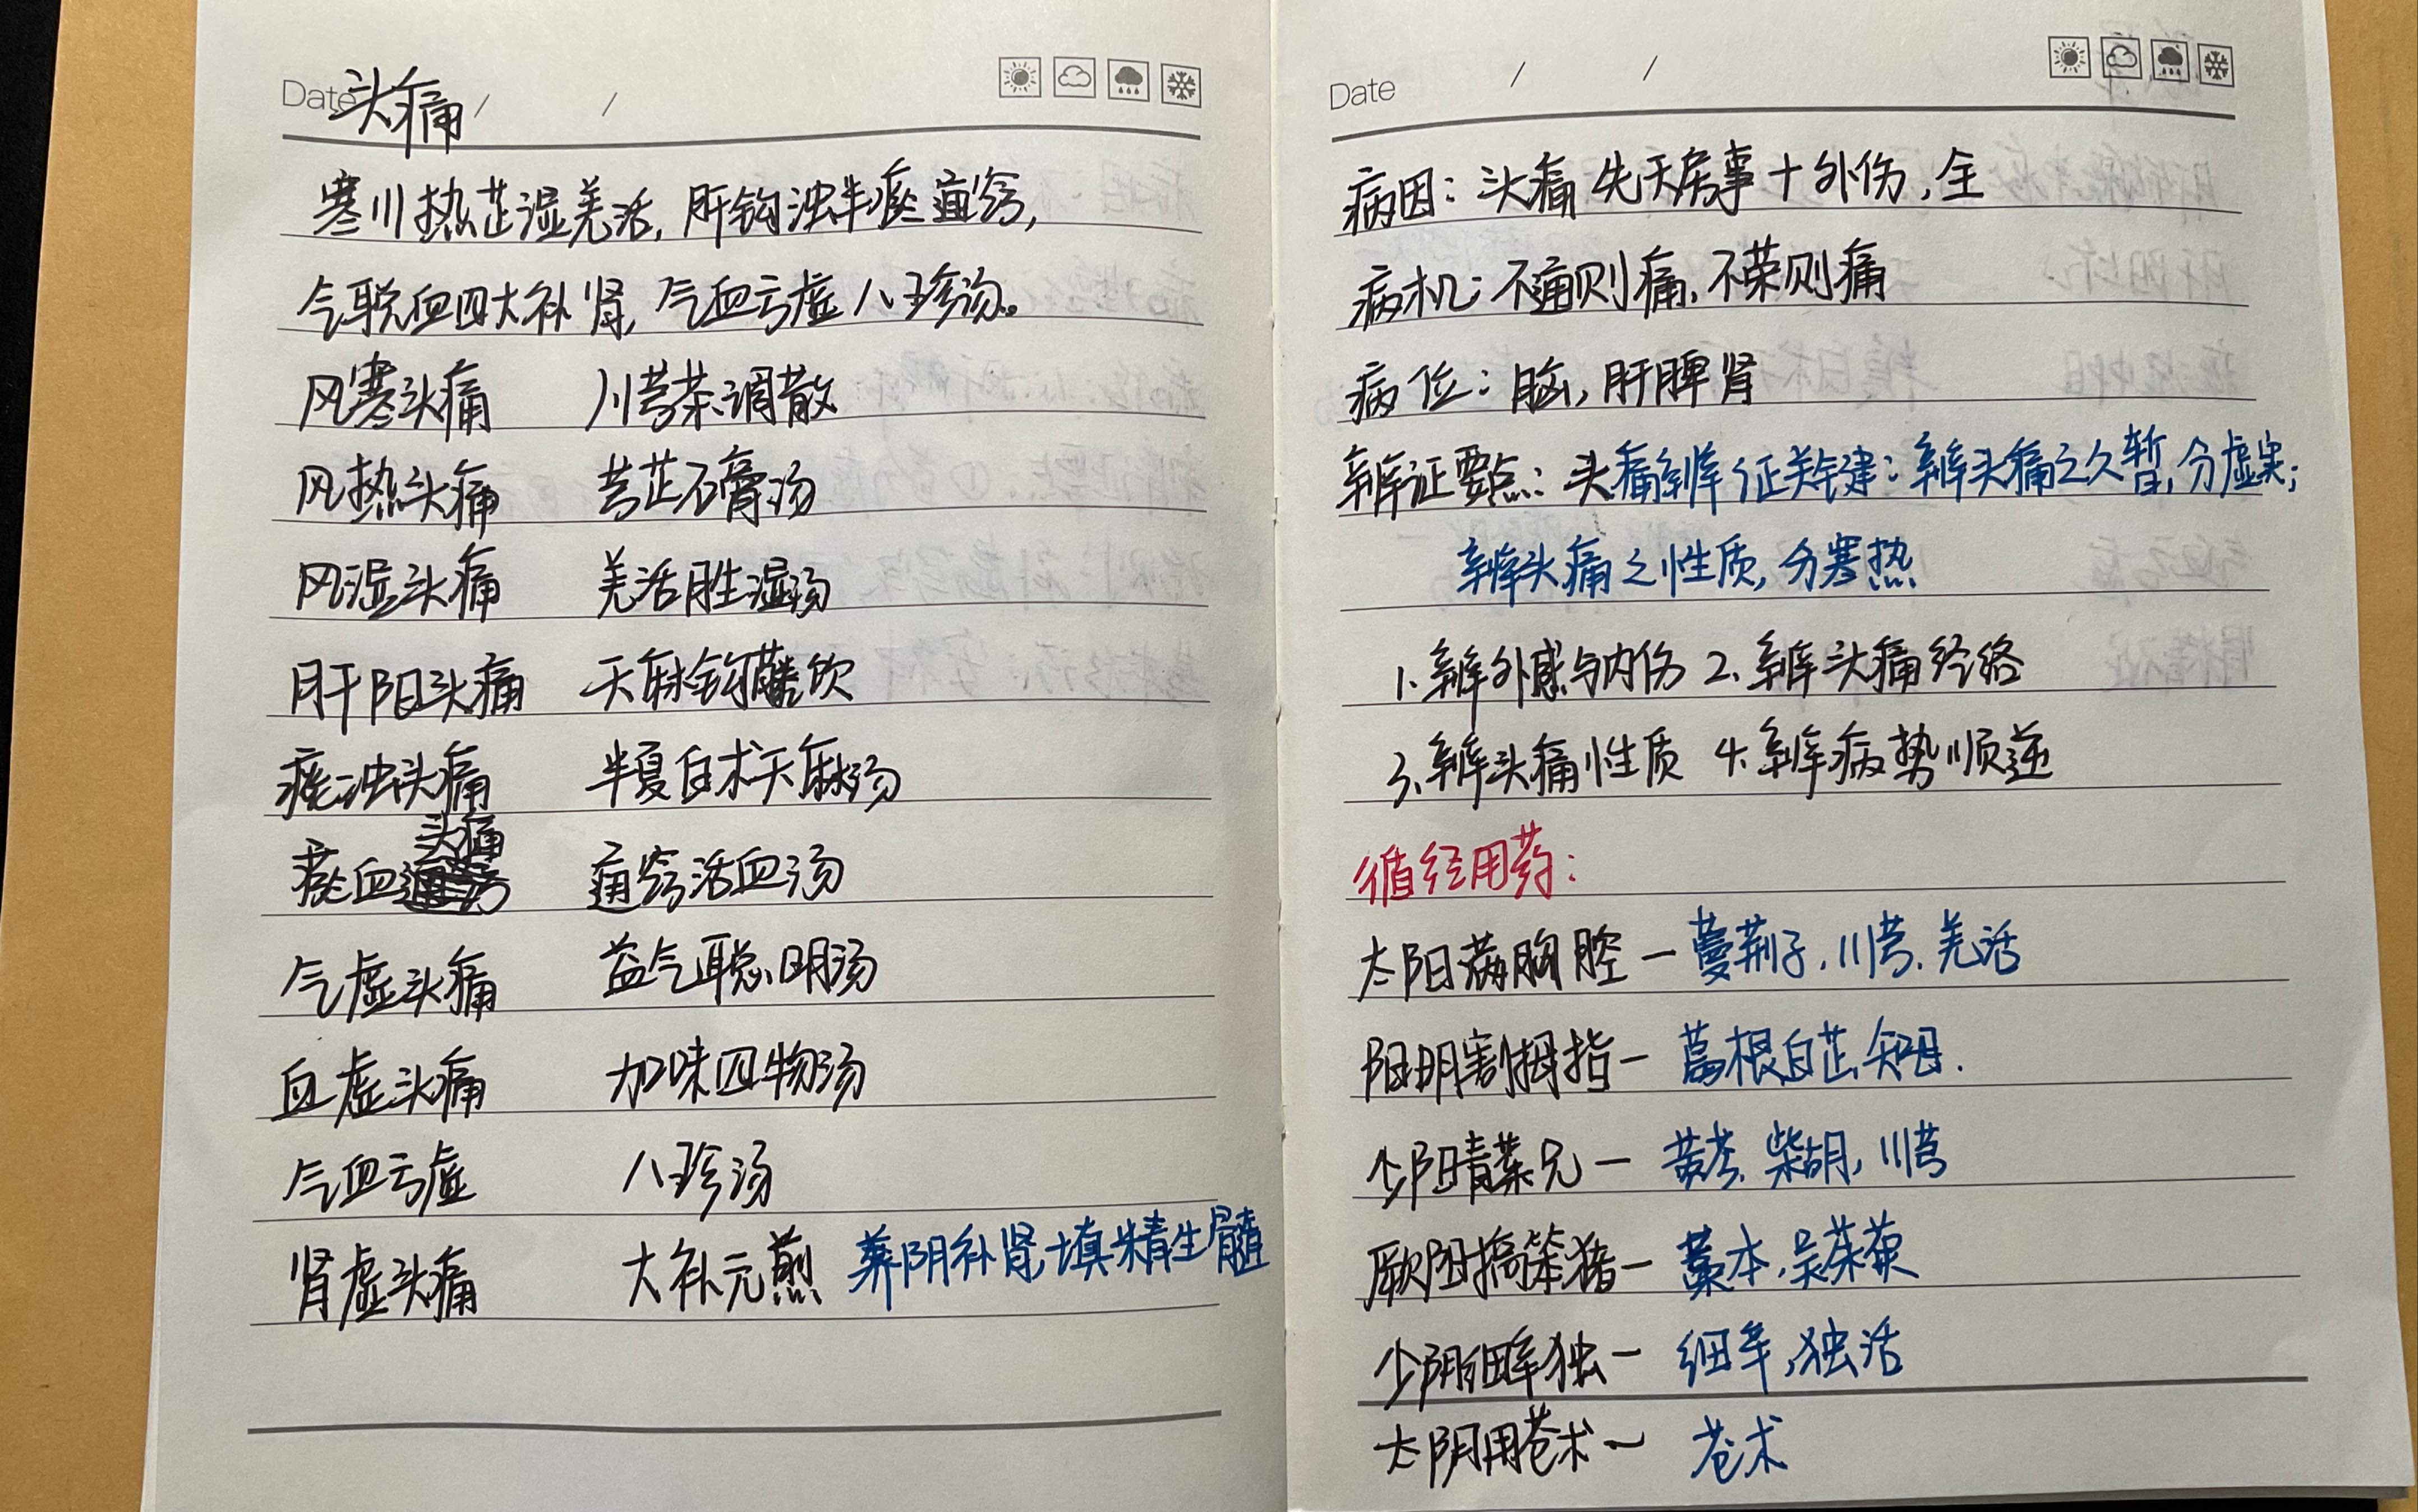 Date 头痛 / /
寒川热芷湿羌活,肝钩浊半瘀通窍,
气聪血四大补肾,气血亏虚八珍汤。
风寒头痛 川芎茶调散
风热头痛 芎芷石膏汤
风湿头痛 羌活胜湿汤
肝阳头痛 天麻钩藤饮
痰浊头痛 半夏白术天麻汤
瘀血头痛 通窍活血汤
气虚头痛 益气聪明汤
血虚头痛 加味四物汤
气血亏虚 八珍汤
肾虚头痛 大补元煎 养阴补肾,填精生髓
Date / /
病因:头痛先天房事+外伤,全
病机:不通则痛,不荣则痛
病位:脑,肝脾肾
辨证要点:头痛辨证关键:辨头痛之久暂,分虚实;
辨头痛之性质,分寒热
1.辨外感与内伤 2.辨头痛经络
3.辨头痛性质 4.辨病势顺逆
循经用药:
太阳满胸腔—蔓荆子.川芎.羌活
阳明割拇指—葛根白芷,知母.
少阳青菜兄—黄芩.柴胡,川芎
厥阴搞笨猪—藁本,吴茱萸
少阴细辛独—细辛,独活
太阴用苍术— 苍术